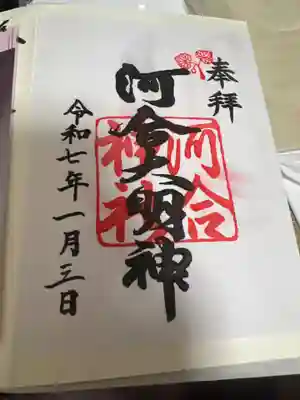 奉拝
河合大明神
河合
神社
令和七年一月三日